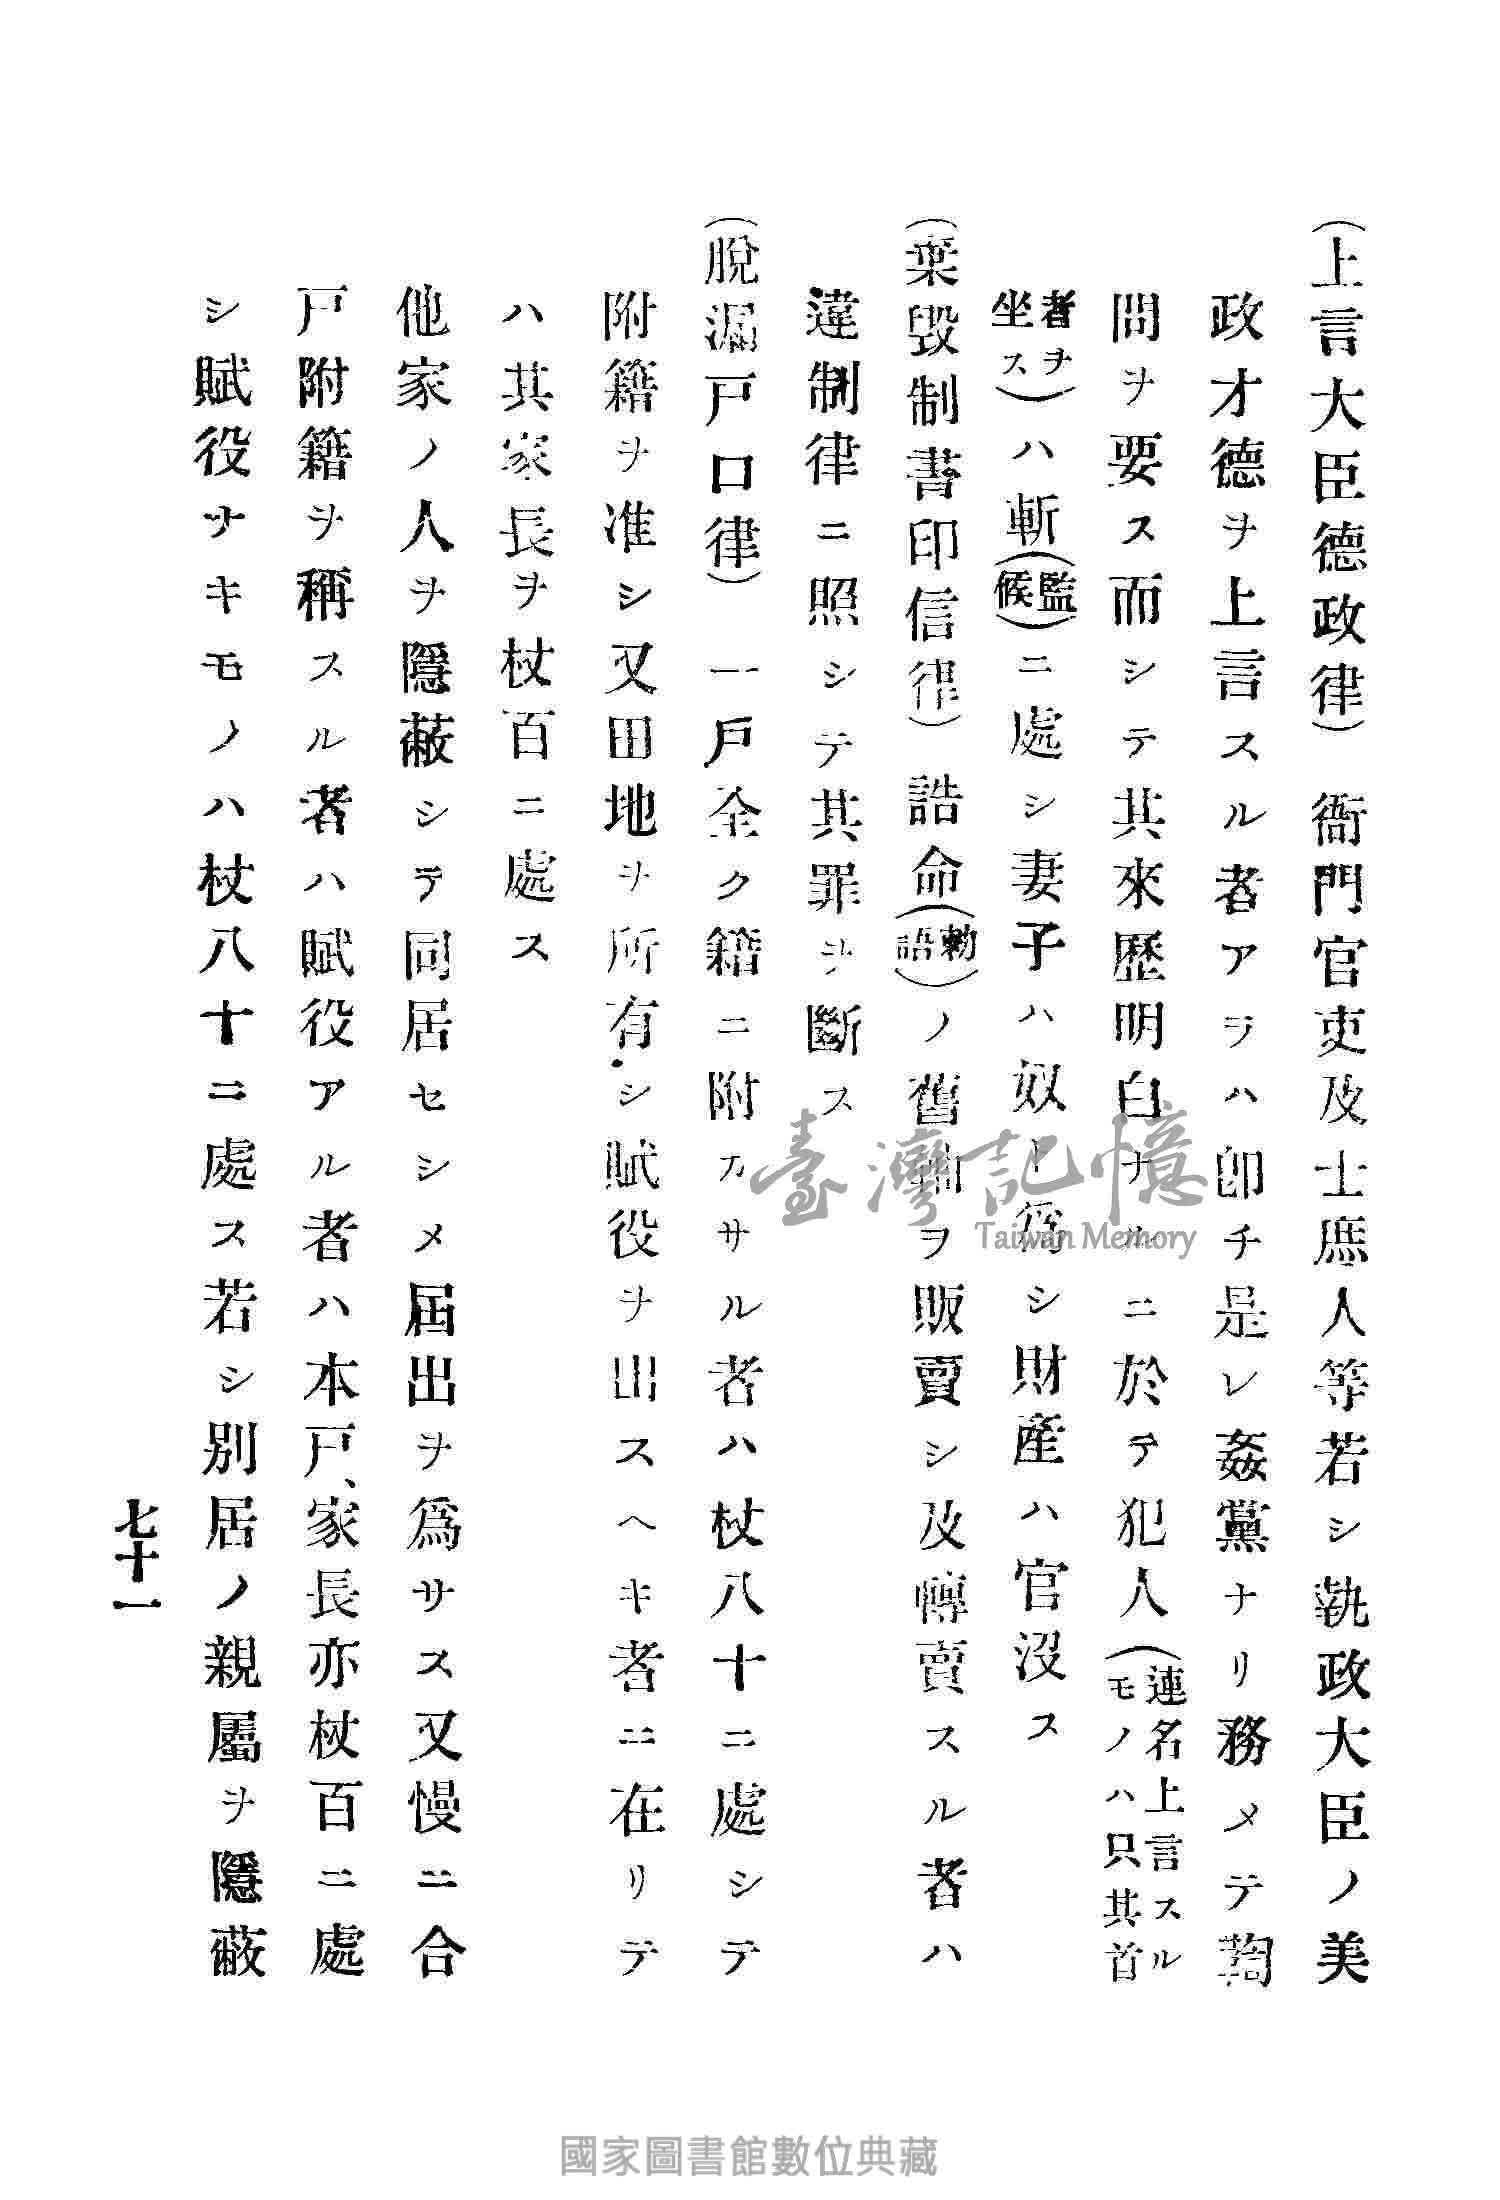 (上言大臣德政律) 衙門官吏及士庶人等若シ執政大臣ノ美
政才德ヲ上言スル者アラハ卽チ是レ姦黨ナリ務メテ鞫
問ヲ要ス而シテ其來歷明白ナルニ於テ犯人(連名上言スルモノハ只其首
者ヲ坐ス)ハ斬(監候)ニ處シ妻子ハ奴ト爲シ財産ハ官沒ス
(棄毀制書印信律) 誥命(勅語)ノ舊軸ヲ販賣シ及轉賣スル者ハ
違制律ニ照シテ其罪ヲ斷ス
(脫漏戸口律) 一戸全ク籍ニ附カサル者ハ杖八十ニ處シテ
附籍ヲ准シ又田地ヲ所有シ賦役ヲ出スヘキ者ニ在リテ
ハ其家長ヲ杖百ニ處ス
他家ノ人ヲ隱蔽シテ同居セシメ屆出ヲ爲サス又慢ニ合
戸附籍ヲ稱スル者ハ賦役アル者ハ本戸、家長亦杖百ニ處
シ賦役ナキモノハ杖八十ニ處ス若シ別居ノ親屬ヲ隱蔽
七十一
臺灣記憶
Taiwan Memory
國家圖書館數位典藏